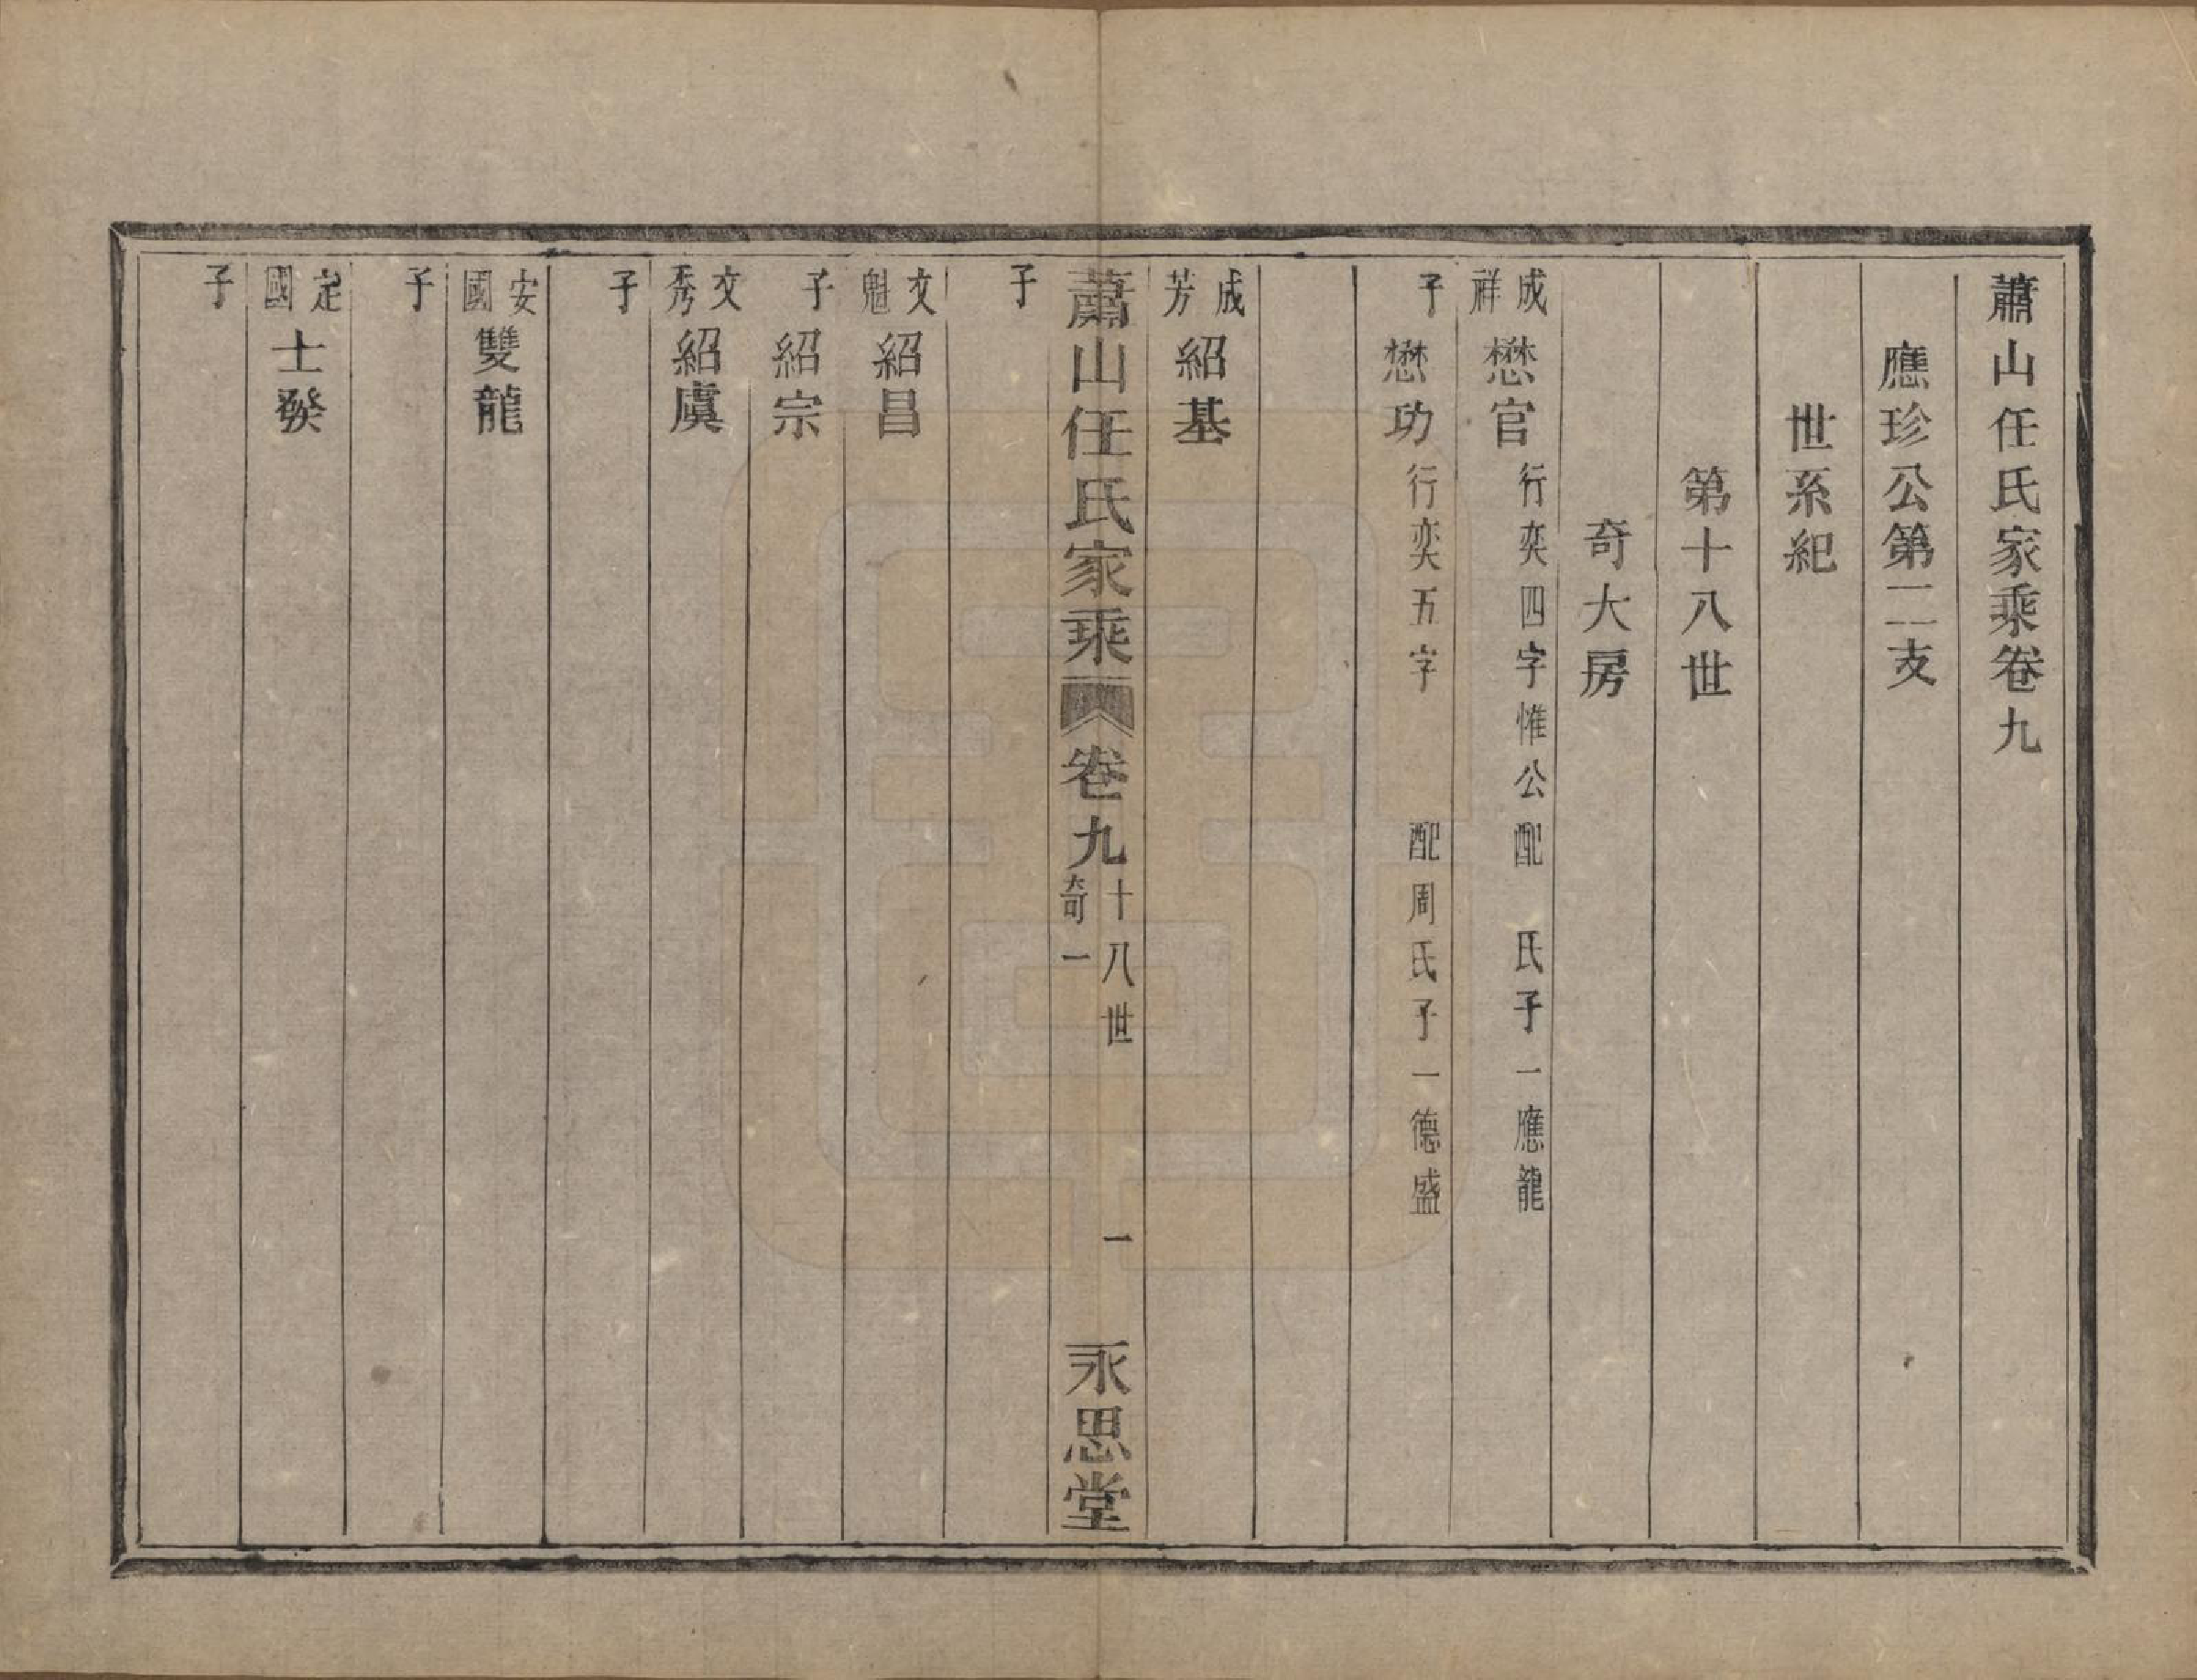 蕭山任氏家乘卷九
應珍公第二支
世系紀
第十八世
奇大房
成祥懋官行奕四字惟公配　氏子一應龍
子懋功行奕五字　　配周氏子一德盛
成芳紹基
蕭山任氏家乘卷九十八世奇一　一　永思堂
子
文魁紹昌
子紹宗
文秀紹虞
子
安國雙龍
子
定國士發
子